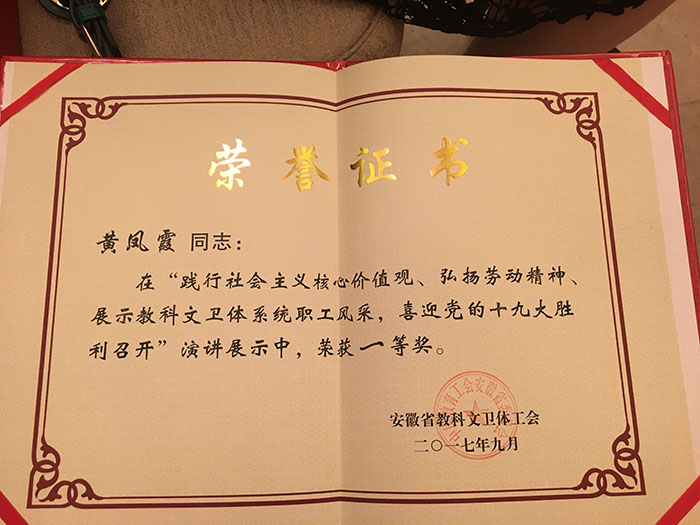 荣誉证书
黄凤霞 同志：
在“践行社会主义核心价值观、弘扬劳动精神、
展示教科文卫体系统职工风采，喜迎党的十九大胜
利召开”演讲展示中，荣获一等奖。
安徽省教科文卫体工会
二〇一七年九月